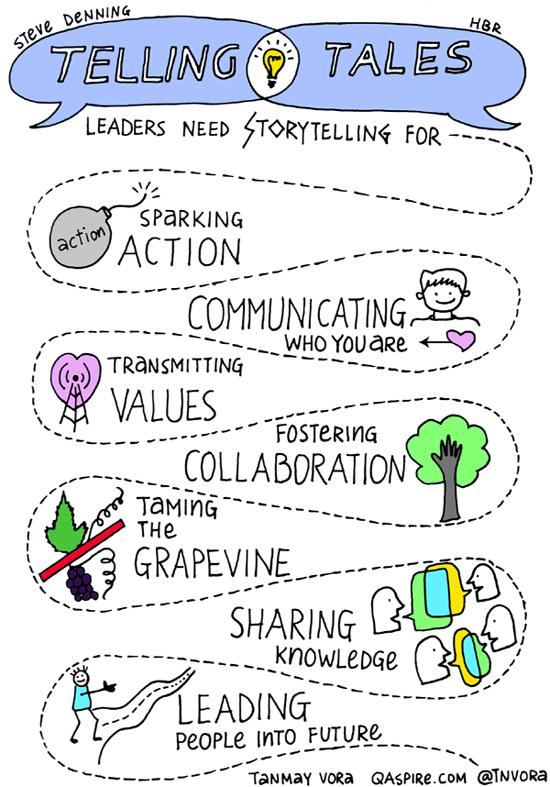 STEVE DENNING
HBR
TELLING TALES
LEADERS NEED STORYTELLING FOR
action
SPARKING
ACTION
COMMUNICATING
WHO YOU ARE
TRANSMITTING
VALUES
FOSTERING
COLLABORATION
TAMING
THE
GRAPEVINE
SHARING
KNOWLEDGE
LEADING
PEOPLE INTO FUTURE
TANMAY VORA QASPIRE.COM @TNVORA